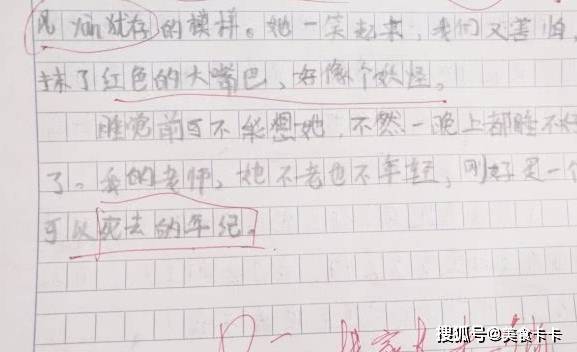 风yùn犹存的模样。她一笑起来,我们又害怕,
抹了红色的大嘴巴,好像个妖怪。
睡觉前可不能想她,不然一晚上都睡不好
了。我的老师,她不老也不年轻,刚好是一个
可以死去的年纪。
搜狐号@美食卡卡